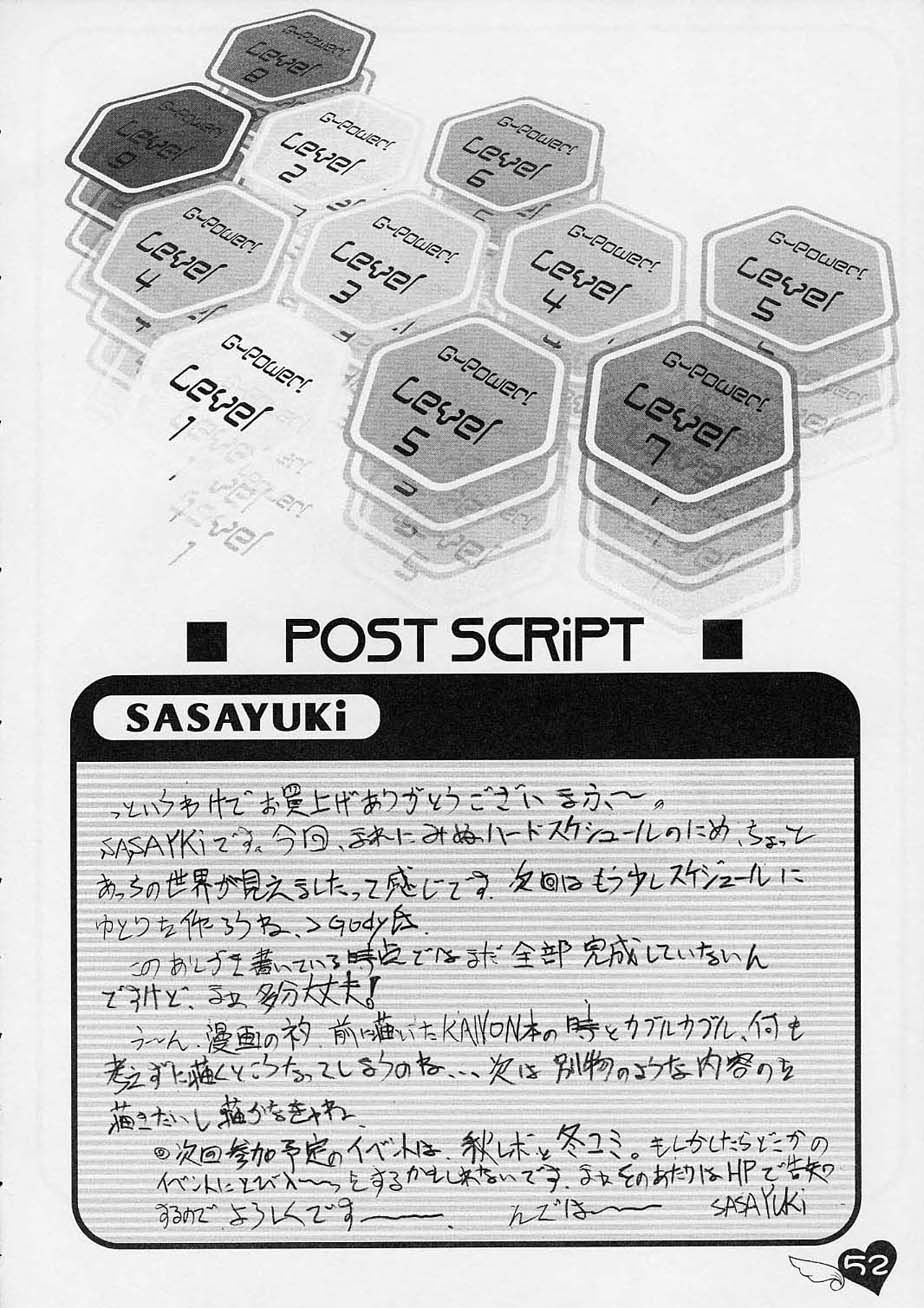 G-Power!
Level
8
G-Power!
Level
9
G-Power!
Level
2
G-Power!
Level
6
G-Power!
Level
4
G-Power!
Level
3
G-Power!
Level
4
G-Power!
Level
5
G-Power!
Level
1
G-Power!
Level
5
G-Power!
Level
7
■ POST SCRiPT ■
SASAYUKi
っというわけでお買上げありがとうございまふ〜。
SASAYKiです。今回、まれにみぬハードスケジュールのため、ちょっと
あっちの世界が見えましたって感じです。次回はもう少しスケジュールに
ゆとりを作ろうね、>Gody氏.
このあとがきを書いている時点ではまだ全部完成していないん
ですけど、まぁ多分大丈夫!
う〜ん、漫画のネタ、前に描いたKANON本の時とカブルカブル、何も
考えずに描くとこうなってしまうのね、、、次は別物のような内容のを
描きたいし描かなきゃね、
◎次回参加予定のイベントは、秋レボと冬コミ。もしかしたらどこかの
イベントにとび入〜〜っとするかもしれないです、まぁそのあたりはHPで告知
するので、よろしくです―――. んでは〜〜 SASAYUKi
52